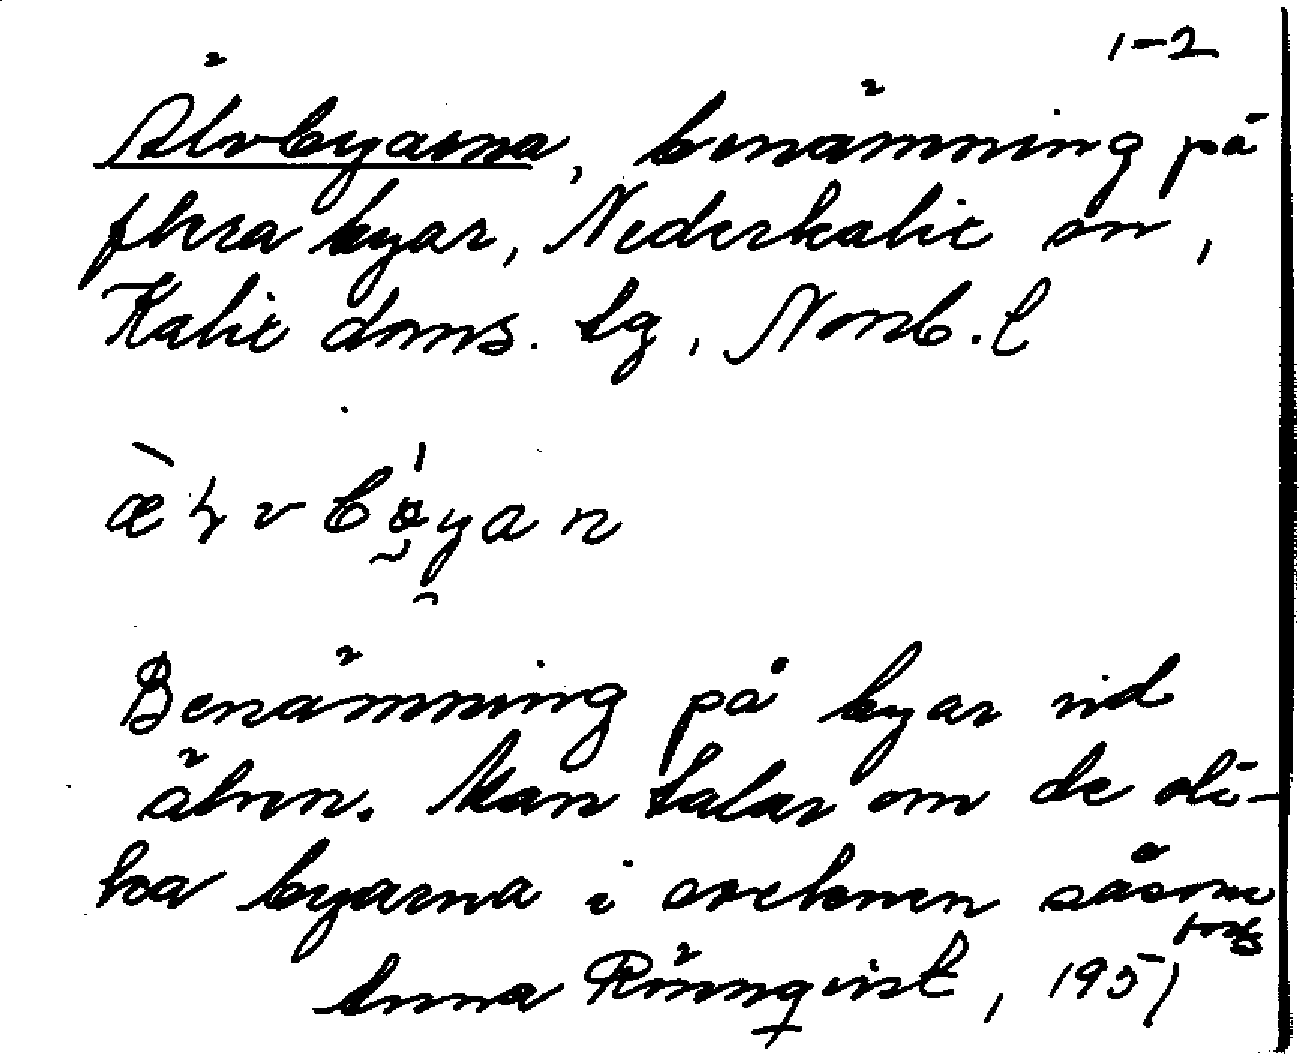 1-2
Älvbyarna, benämning på
flera byar, Nederkalix sn,
Kalix doms. tg, Norrb. l
Benämning på byar vid
älven. Man talar om de oli-
ka byarna i socknen såsom
forts
Anna Rönnqvist, 1951